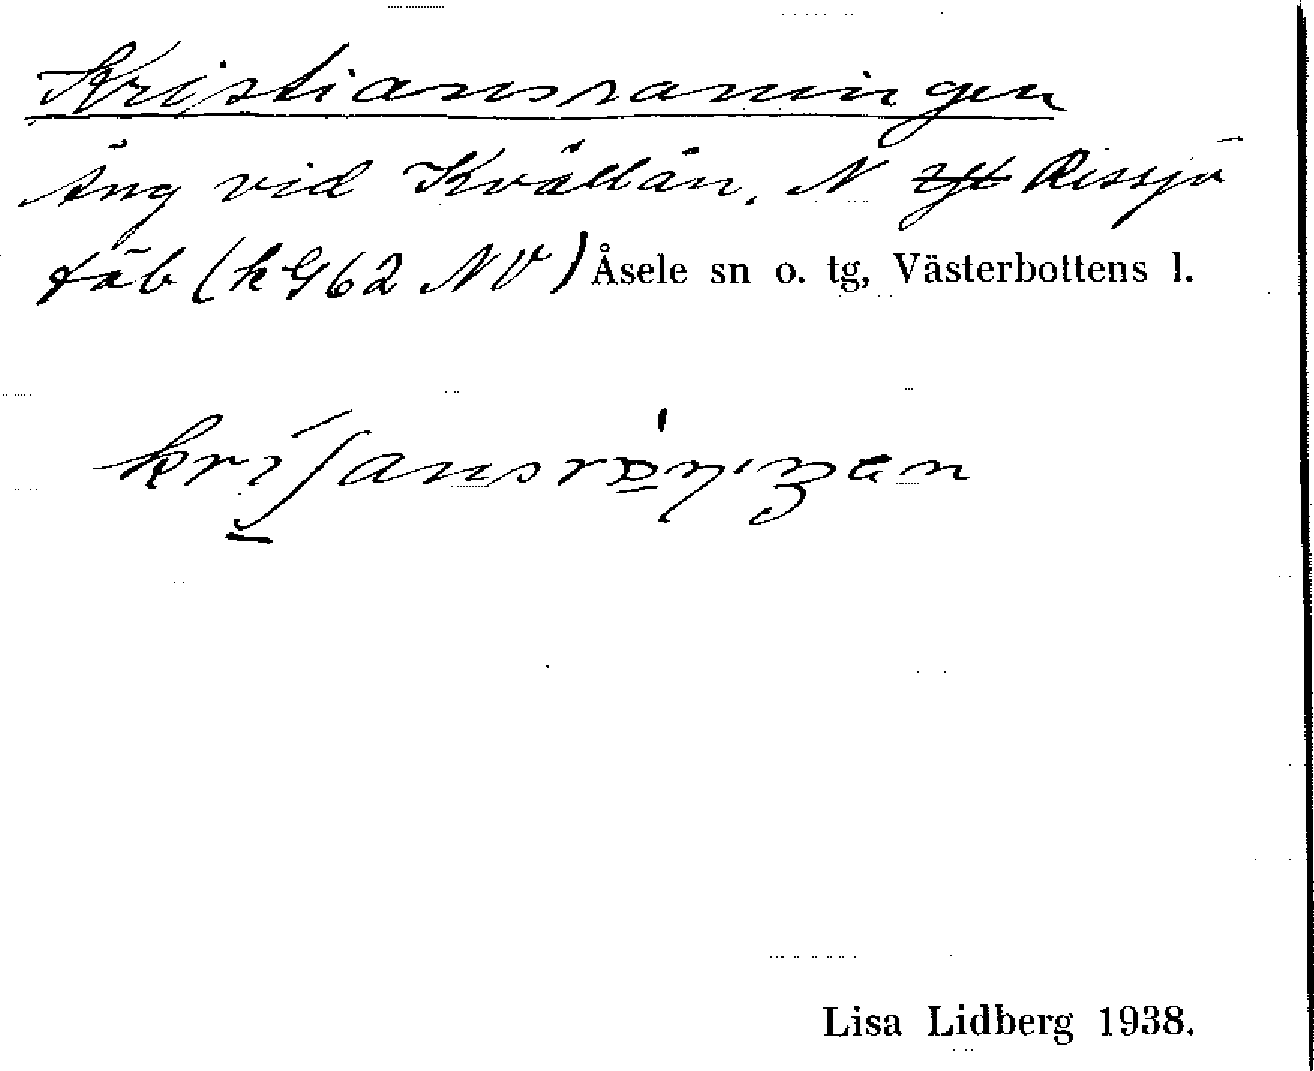 Kristiansraningen
Äng vid Kvällån. N Rissjö
fäb (k 962 NV) Åsele sn o. tg, Västerbottens l.
Lisa Lidberg 1938.